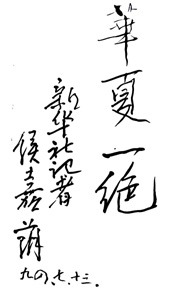 華夏一绝
新华社记者
侯士嘉
九四.七.十三.